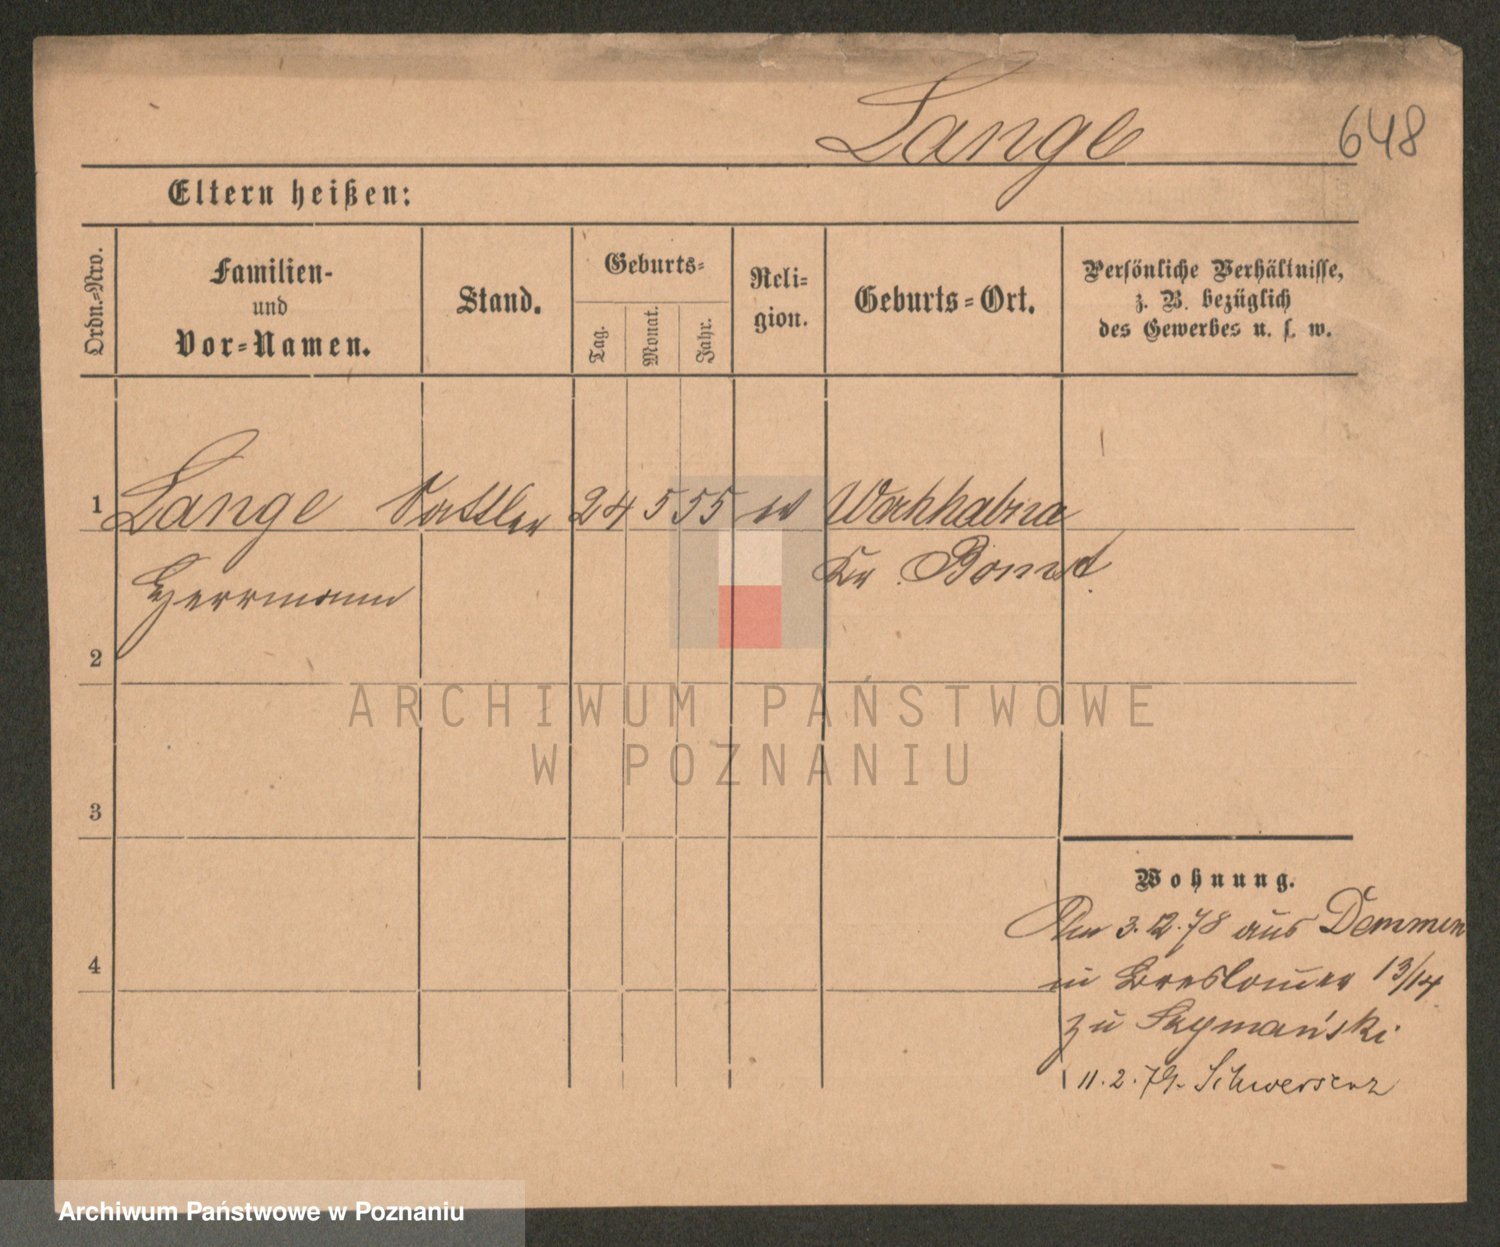 Lange
648
Eltern heißen:
Ordn.=Nro.
Familien-
und
Vor=Namen.
Stand.
Geburts=
Tag.
Monat.
Jahr.
Reli=
gion.
Geburts=Ort.
Persönliche Verhältnisse,
z. B. bezüglich
des Gewerbes u. s. w.
1 Lange Sattler 24 5 55
Kr. Bomst
Herrmann
2
ARCHIWUM PAŃSTWOWE
W POZNANIU
3
Wohnung.
3.12.78 aus Demmen
in Breslauer 13/14
4
zu Szymański
11.2.79. Schwersenz
Archiwum Państwowe w Poznaniu